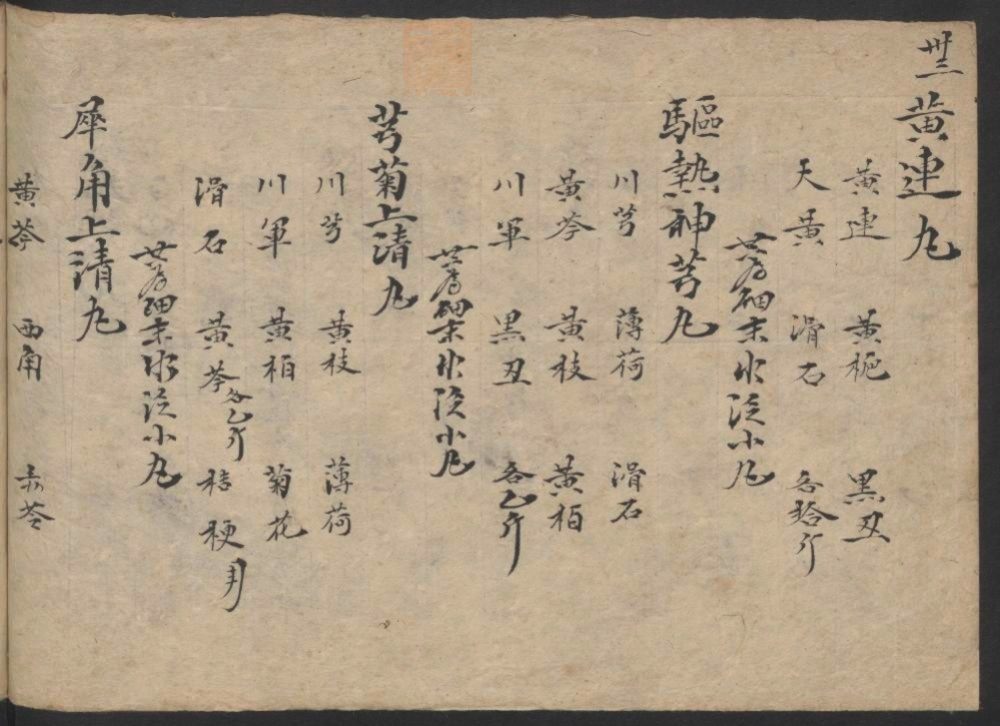 卅三
黄連丸
黄連 黄栀 黒丑
天黄 滑石 各拾斤
共為細末水泛小丸
驅熱神芎丸
川芎 薄荷 滑石
黄芩 黄枝 黄柏
川軍 黒丑 各乙斤
共為細末水泛小丸
芎菊上清丸
川芎 黄枝 薄荷
川軍 黄柏 菊花
滑石 黄芩各乙斤 桔梗
共為細末水泛小丸
犀角上清丸
黄芩 西角 赤苓